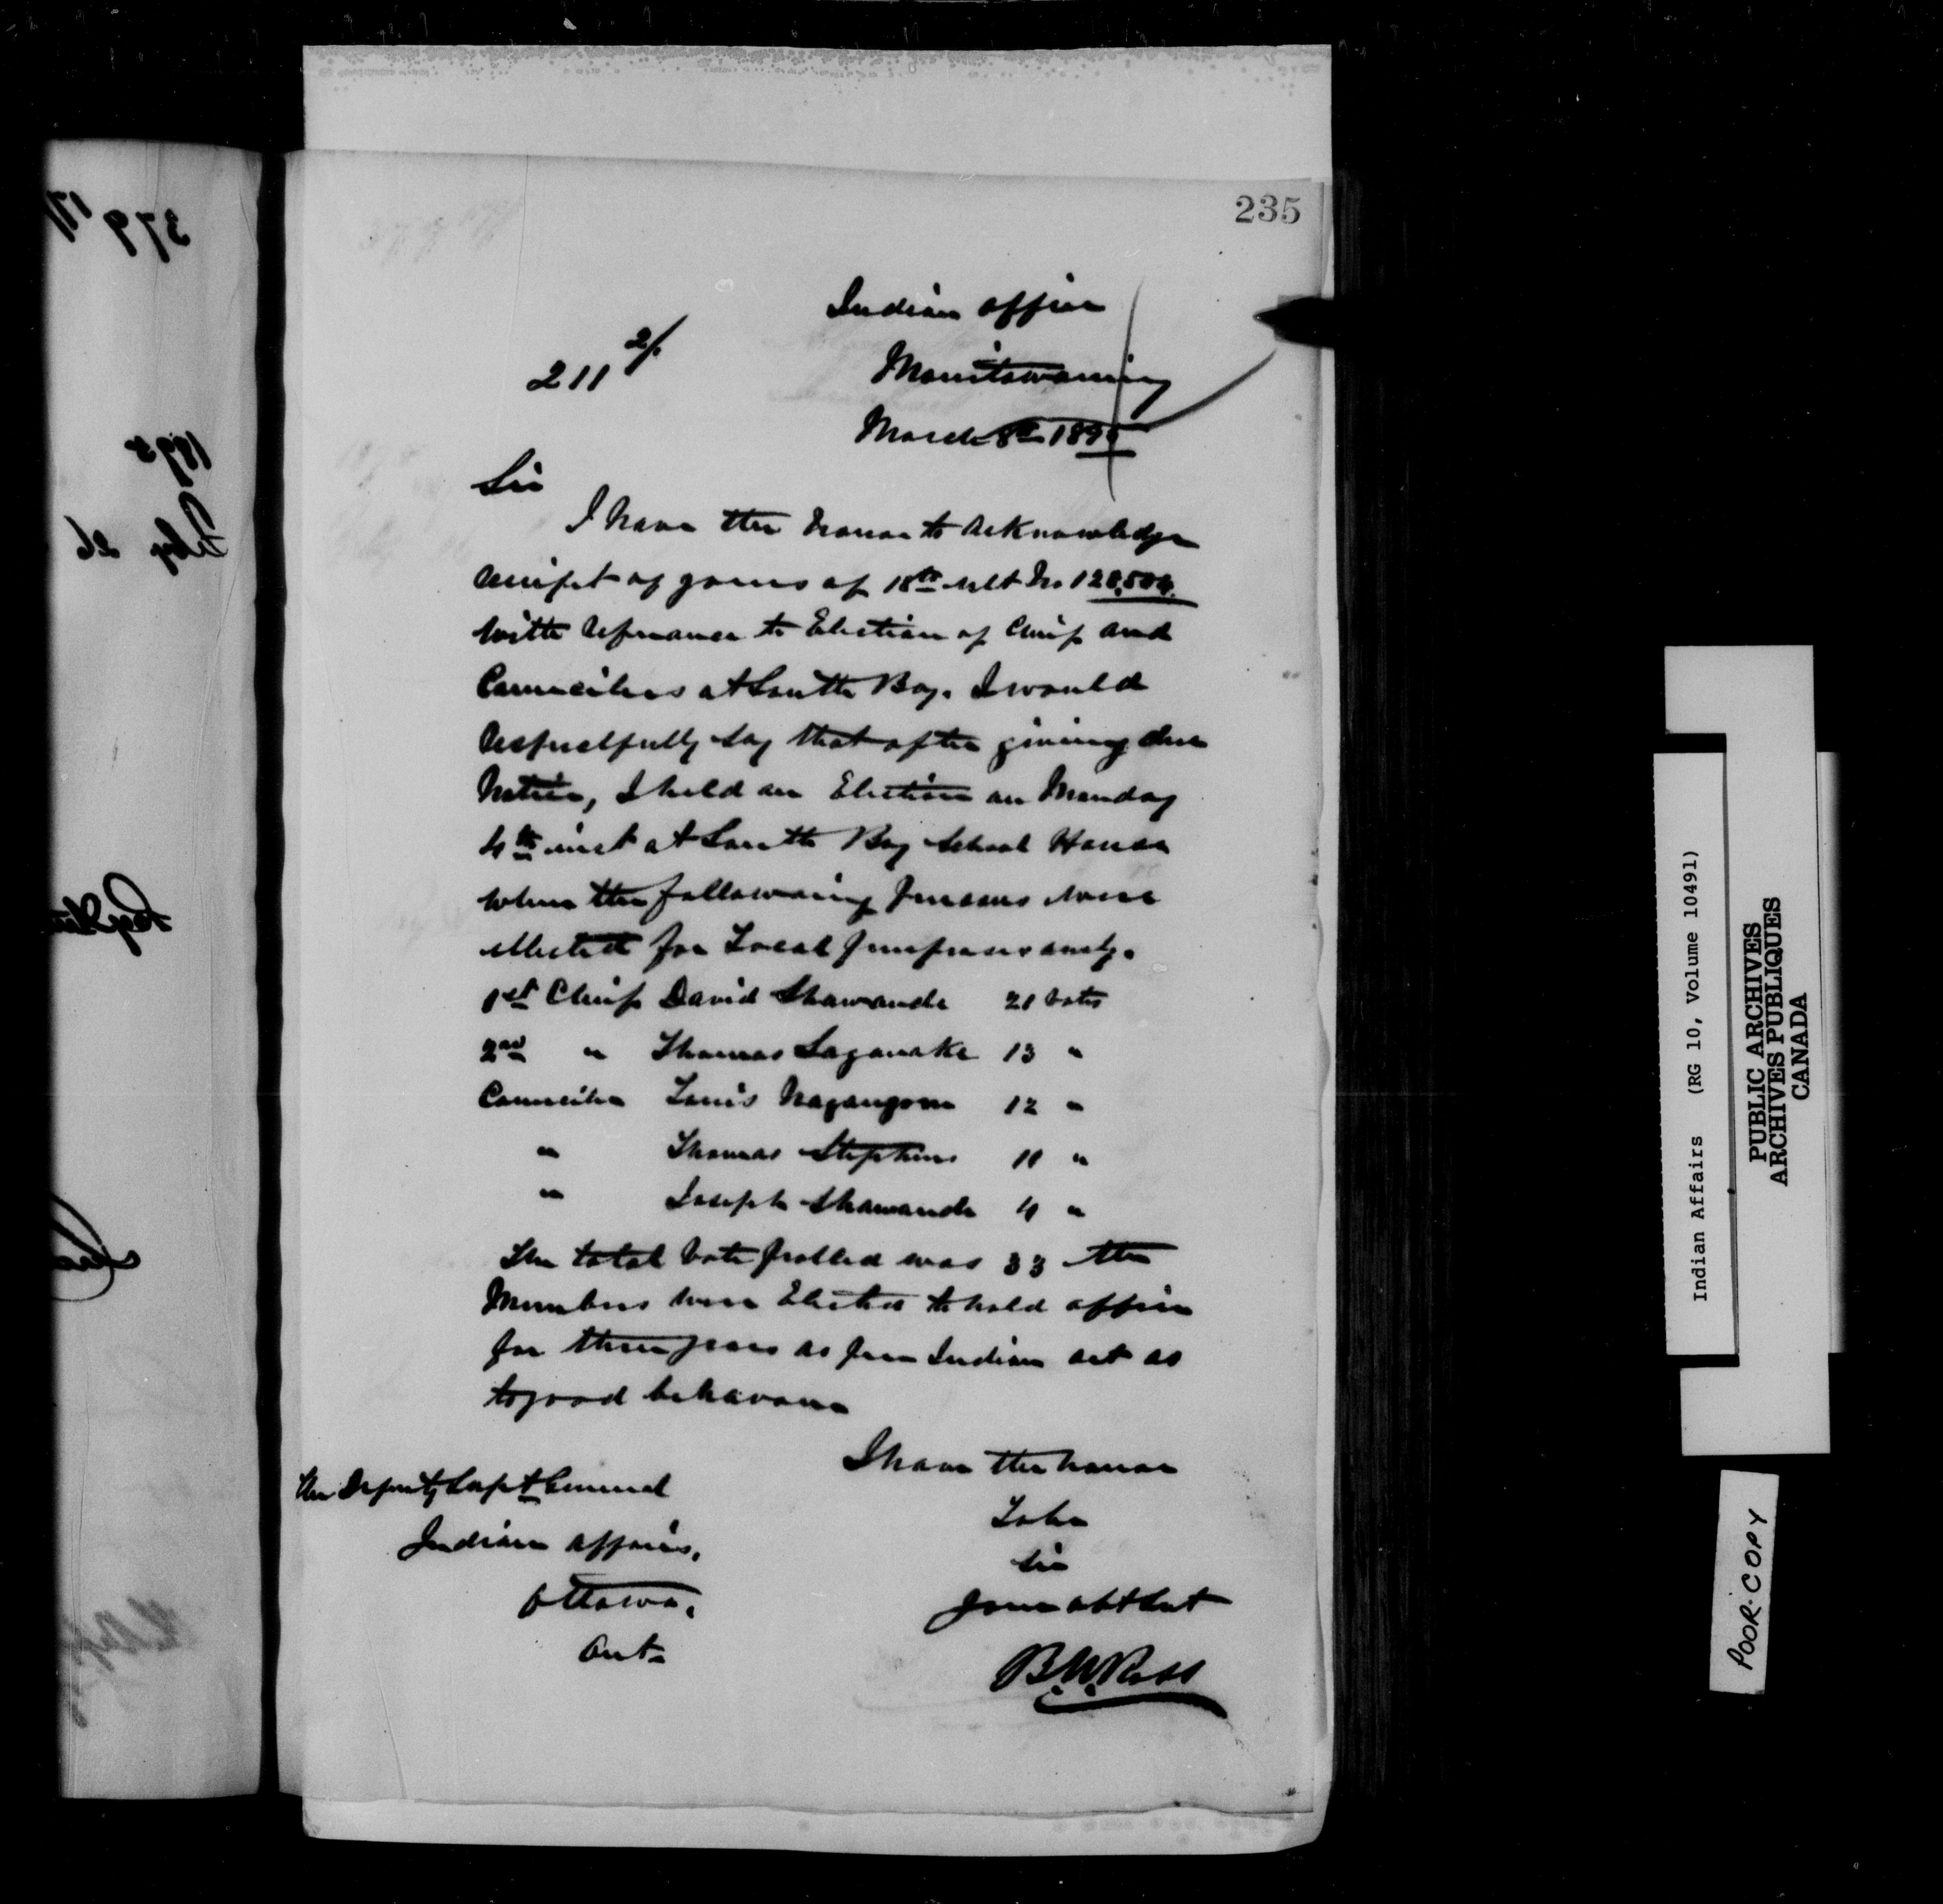 235
Indian Office
211 2/
Manitowaning
March 8th 1895
Sir
I have the honor to acknowledge
receipt of yours of 18th ult No
with reference to Election of Chief and
Councilors at South Bay. I would
respectfully say that after giving due
notice, I held an Election on Monday
4th inst at South Bay School House
when the following persons were
elected for Local purposes only.
1st Chief David Shawande 21 votes
2nd " Thomas Laganake 13 "
Councilor Louis Nagangom 12 "
" Thomas Stephens 11 "
" Joseph Shawande 4 "
The total vote polled was 33 the
Members were Elected to hold office
for three years as per Indian act as
to good behavour
I have the honor
To be
Sir
Your obt Svt
B. W. Ross
The Deputy Supt General
Indian Affairs,
Ottawa,
Ont
1895
Feby 26
379
Indian Affairs (RG 10, Volume 10491)
PUBLIC ARCHIVES
ARCHIVES PUBLIQUES
CANADA
POOR COPY